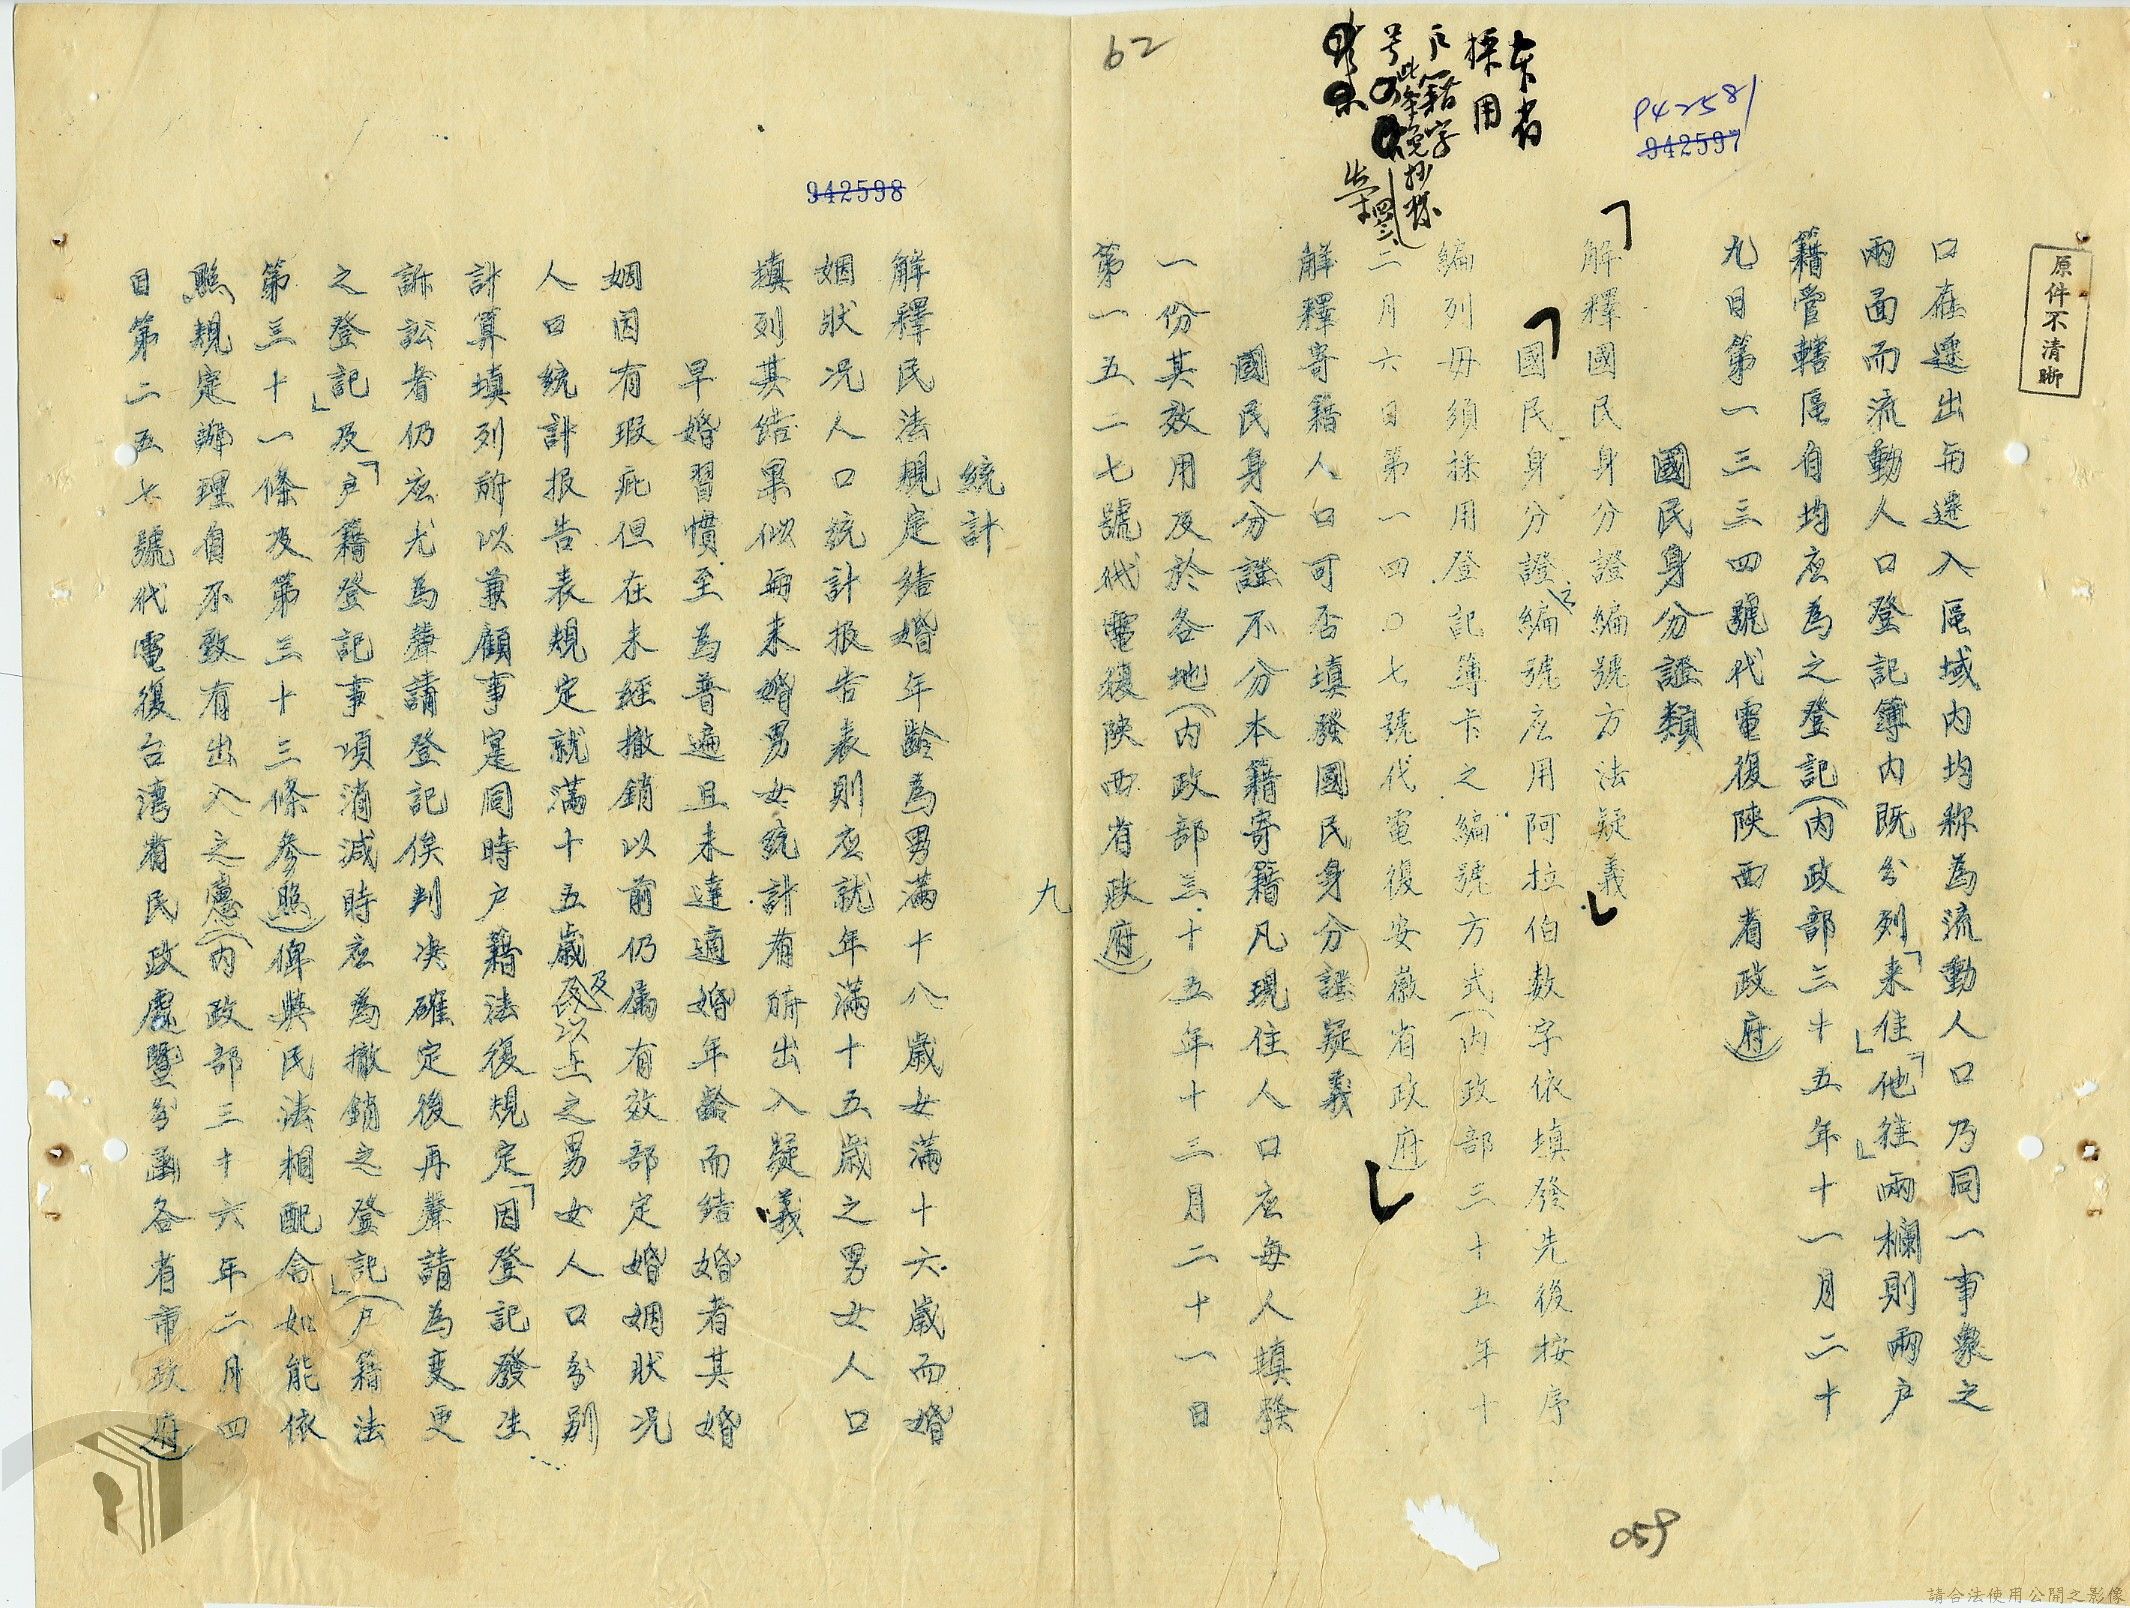 原件不清晰
942581
942597
口在遷出與遷入區域內均称為流動人口乃同一事象之
兩面而流動人口登記簿內既分列「来住」「他往」兩欄則兩户
籍管轄區自均应為之登記(內政部三十五年十一月二十
九日第一三三四號代電復陝西省政府)
國民身分證類
解釋國民身分證編號方法疑義
國民身分證編號应用阿拉伯数字依填發先後按序
編列毋須採用登記簿卡之編號方式(內政部三十五年十
二月六日第一四〇七號代電復安徽省政府)
解釋寄籍人口可否填發國民身分證疑義
國民身分證不分本籍寄籍凡現住人口应每人填發
一份其效用及於各地(內政部三十五年十三月二十一日
第一五二七號代電復陝西省政府)
本省
採用
户籍字
号
此条免抄
62
059
九
942598
統計
解釋民法規定结婚年齡為男滿十八歲女滿十六歲而婚
姻狀况人口統計报告表則应就年滿十五歲之男女人口
填列其结果似與未婚男女統計有所出入疑義
早婚習慣至為普遍且未達適婚年齡而结婚者其婚
姻因有瑕疵但在未經撤銷以前仍屬有效部定婚姻狀况
人口統計报告表規定就滿十五歲及以上之男女人口分别
計算填列所以兼顧事寔同時户籍法復規定「因登記發生
訴訟者仍应尤為聲請登記俟判决確定後再聲請為变更
之登記」及「户籍登記事項消滅時应為撤銷之登記」(户籍法
第三十一條及第三十三條參照)俾與民法相配合如能依
照規定辦理自不致有出入之慮(內政部三十六年二月四
日第二五七號代電復台灣省民政處暨分函各省市政府)
請合法使用公開之影像